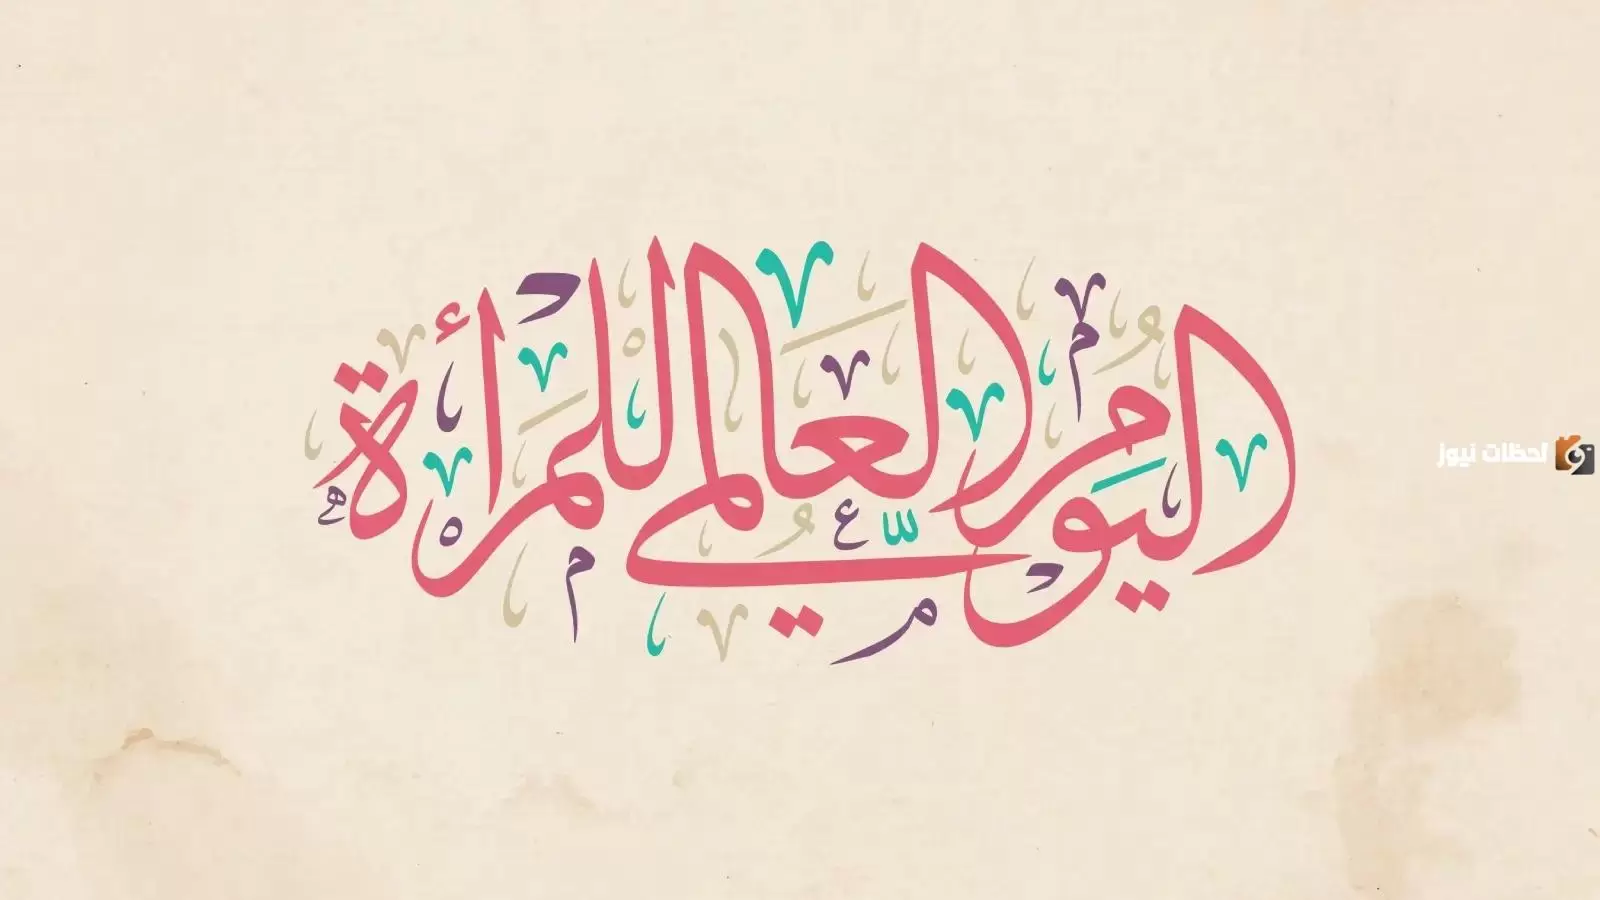 اليوم العالمي للمرأة
لحظات نيوز